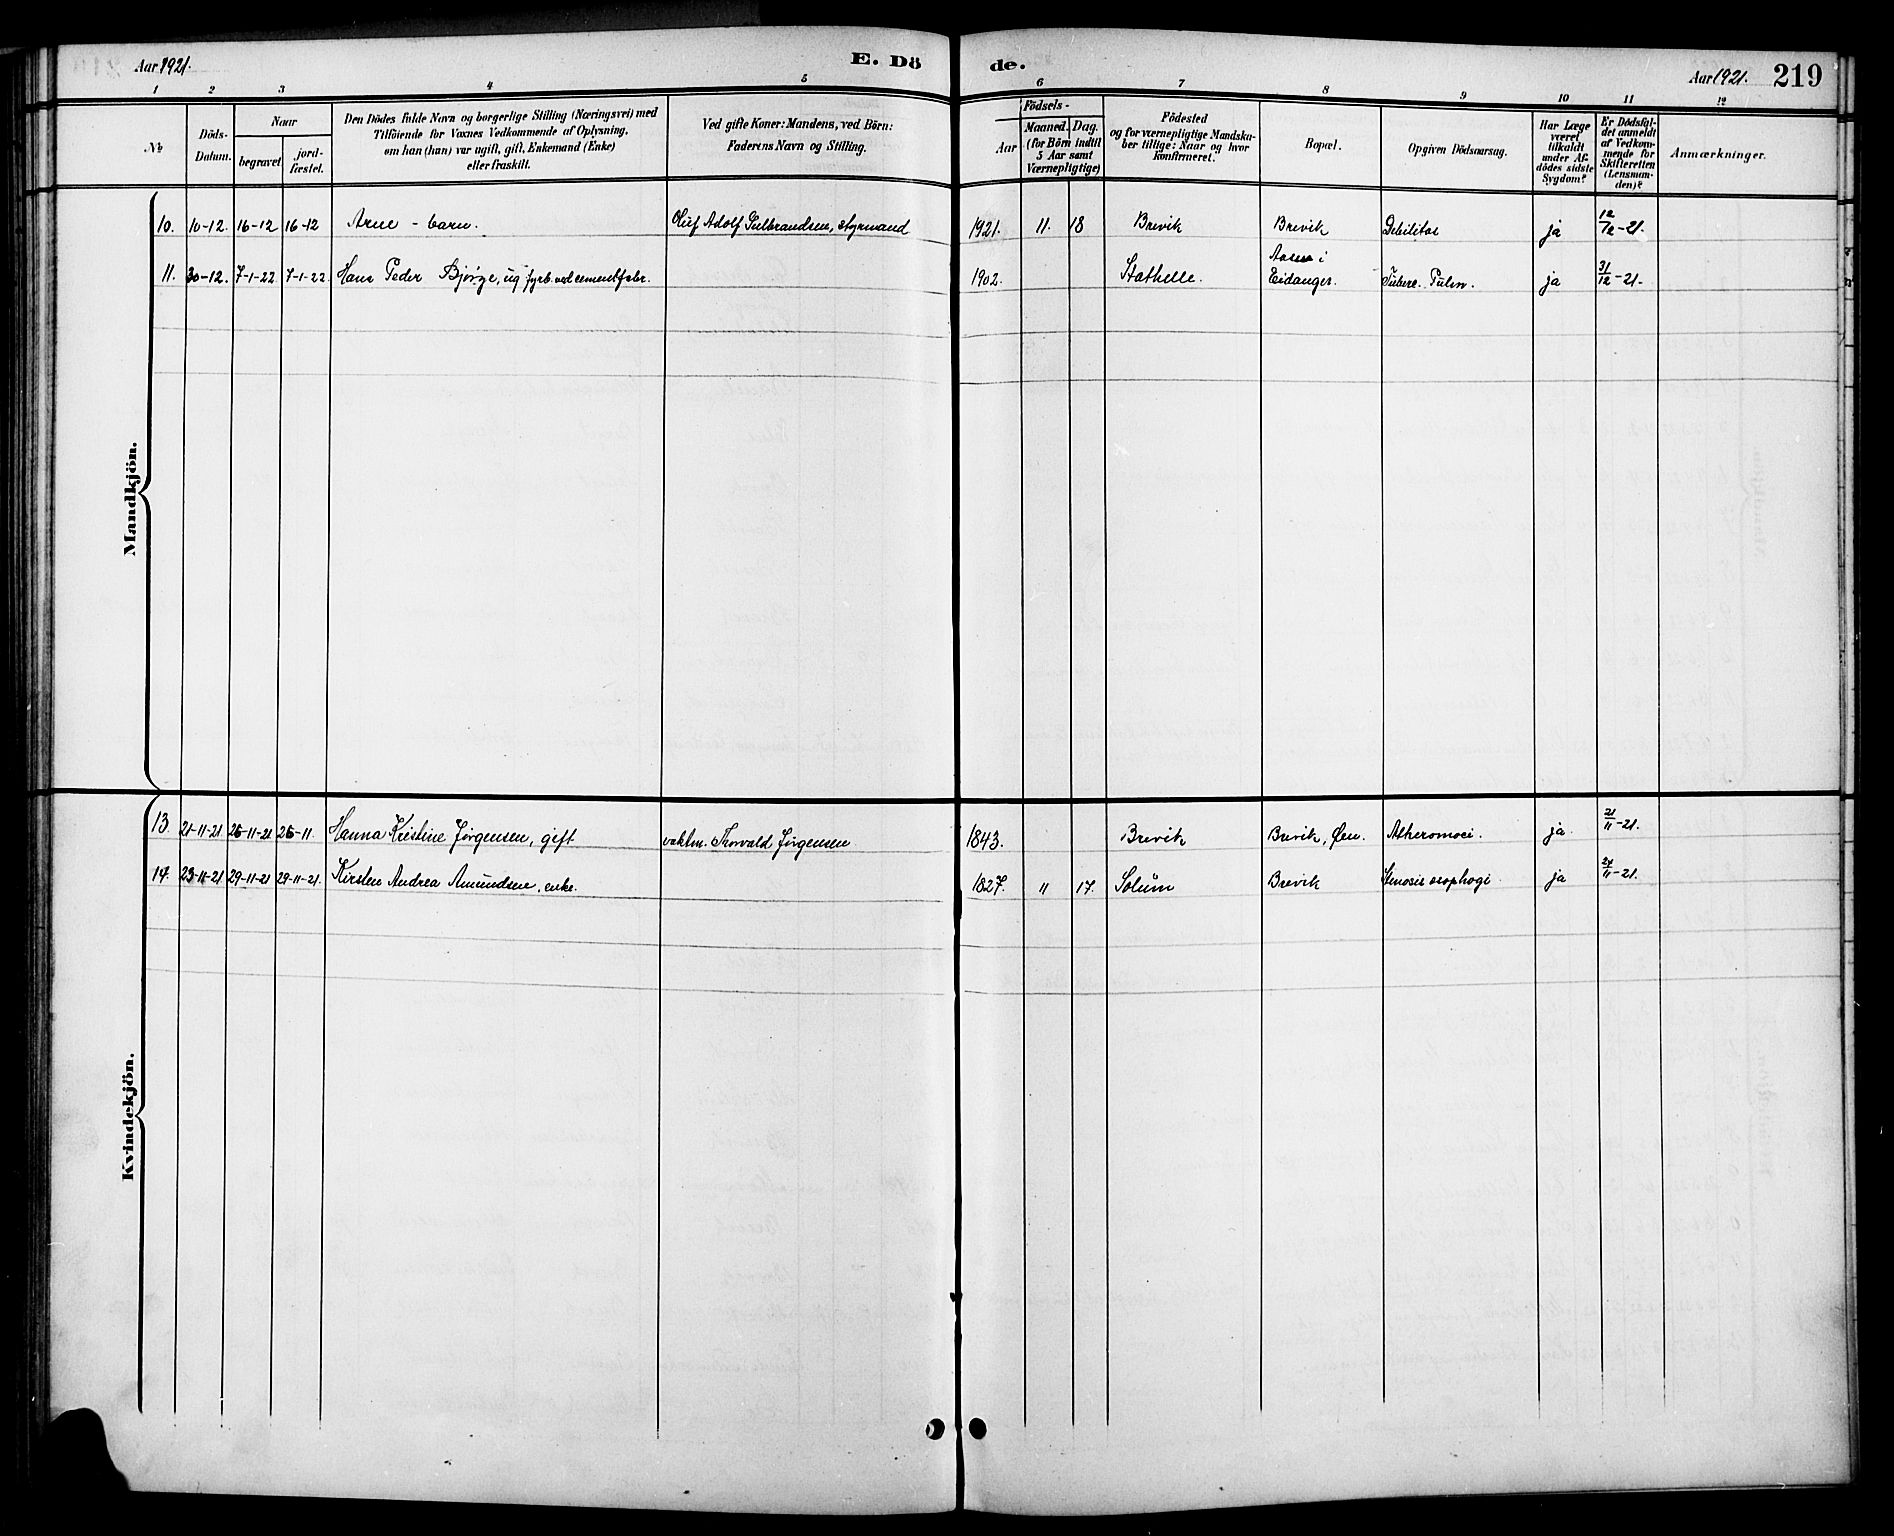 Aar 1921.
E. Dö
de.
Aar 1921.
219
1 2 3 4 5 6 7 8 9 10 11 12
№
Döds-
Datum.
Naar
begravet
jord-
fæstet.
Den Dödes fulde Navn og borgerlige Stilling (Næringsvei) med
Tilföiende for Voxnes Vedkommende af Oplysning,
om han (hun) var ugift, gift, Enkemand (Enke)
eller fraskilt.
Ved gifte Koner: Mandens, ved Börn:
Faderens Navn og Stilling.
Födsels-
Aar
Maaned.
Dag.
(for Börn indtil
5 Aar samt
Værnepligtige)
Födested
og for værnepligtige Mandska-
ber tillige: Naar og hvor
konfirmeret.
Bopæl.
Opgiven Dödsaarsag.
Har Læge
været
tilkaldt
under Af-
dödes sidste
Sygdom?
Er Dödsfal-
det anmeldt
af Vedkom-
mende for
Skifteretten
(Lensman-
den)?
Anmærkninger.
Mandkjön.
10. 10-12. 16-12 16-12 Arne - barn. Oluf Adolf Gulbrandsen, styrmand 1921. 11. 18 Brevik Brevik Debilitas ja 12/12-21.
11. 30-12. 7-1-22 7-1-22. Hans Peder Bjørge, ug fyrb. ved cementfabr. 1902. Stathelle. Aasen i
Eidanger. Tuberc. Pulm. ja 31/12-21.
Kvindekjön.
13. 21-11-21 26-11-21 26-11. Hanna Kristine Jørgensen, gift vaktm. Thorvald Jørgensen 1843. Brevik Brevik, Øen. Atheromoci. ja. 21/11-21.
14. 23-11-21 29-11-21 29-11-21. Kirsten Andrea Amundsen, enke. 1827. 11 17. Solum Brevik Stenosis osophogi. ja 24/11-21.